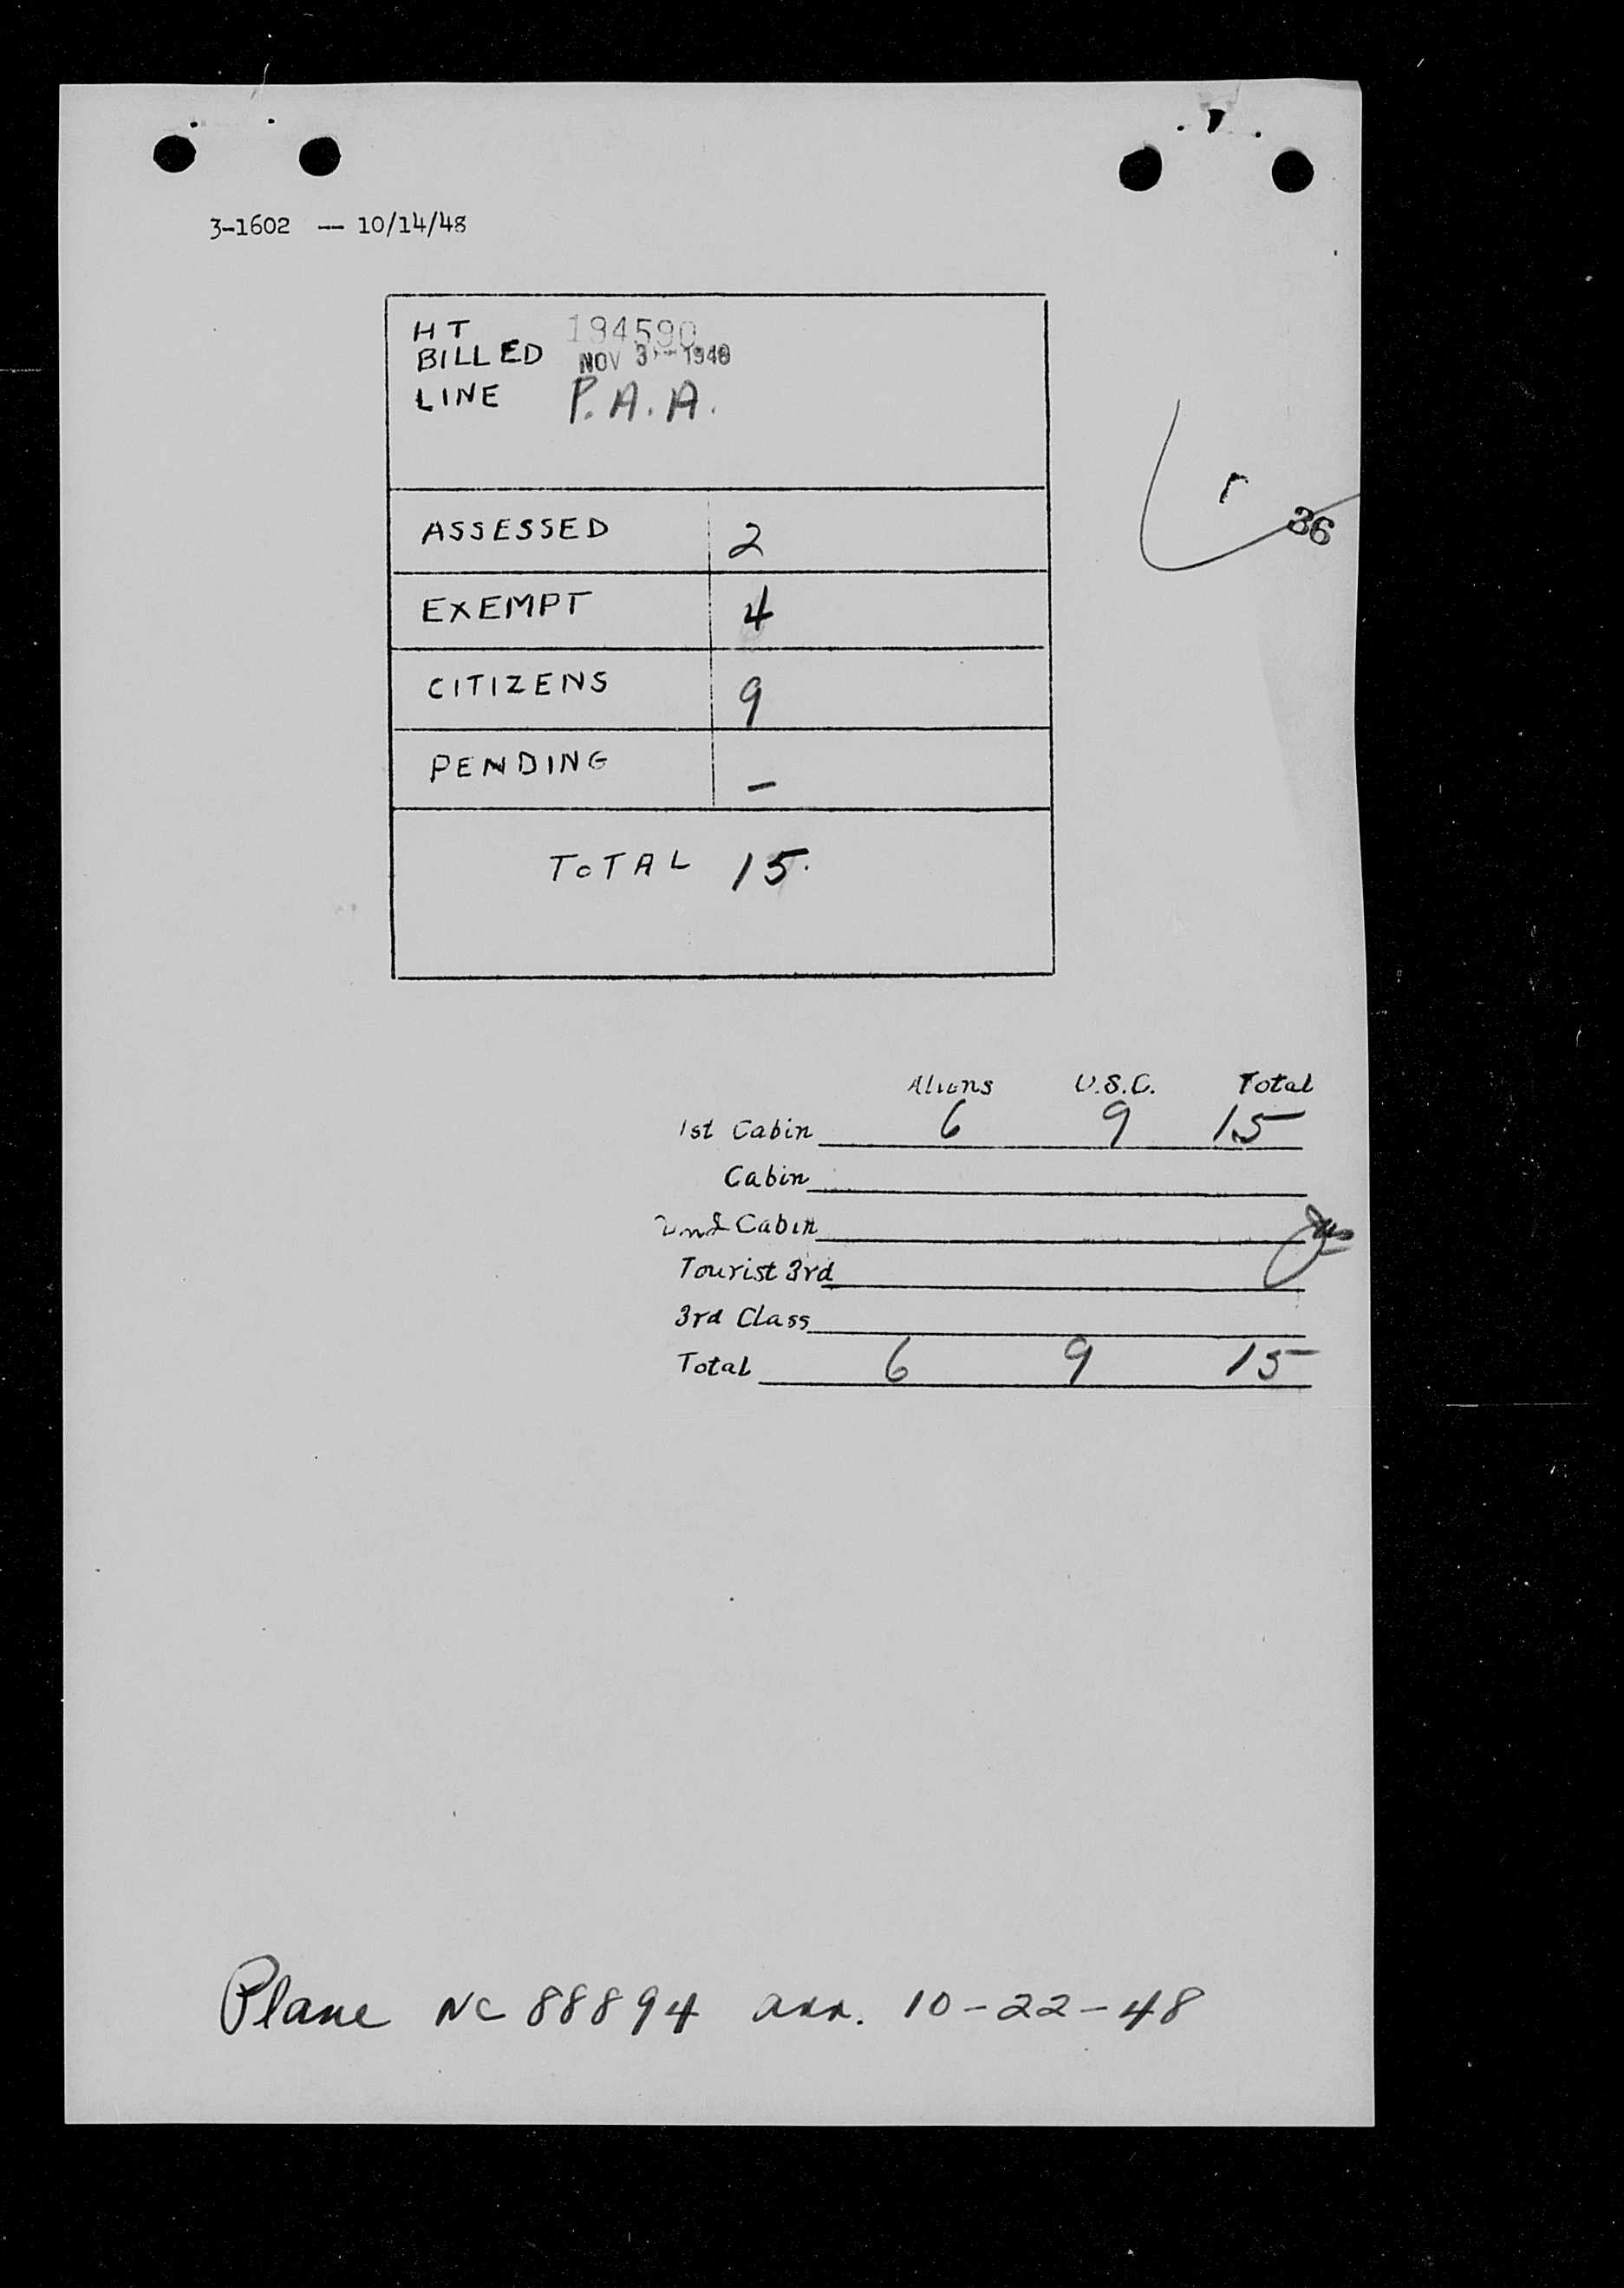 3-1602 -- 10/14/48
HT 194590
BILLED NOV 3 - 1948
LINE P.A.A.
36
ASSESSED 2
EXEMPT 4
CITIZENS 9
PENDING –
TOTAL 15.
Aliens U.S.C. Total
1st Cabin 6 9 15
Cabin
2nd Cabin
Tourist 3rd
3rd Class
Total 6 9 15
Plane NC 88894 arr. 10-22-48